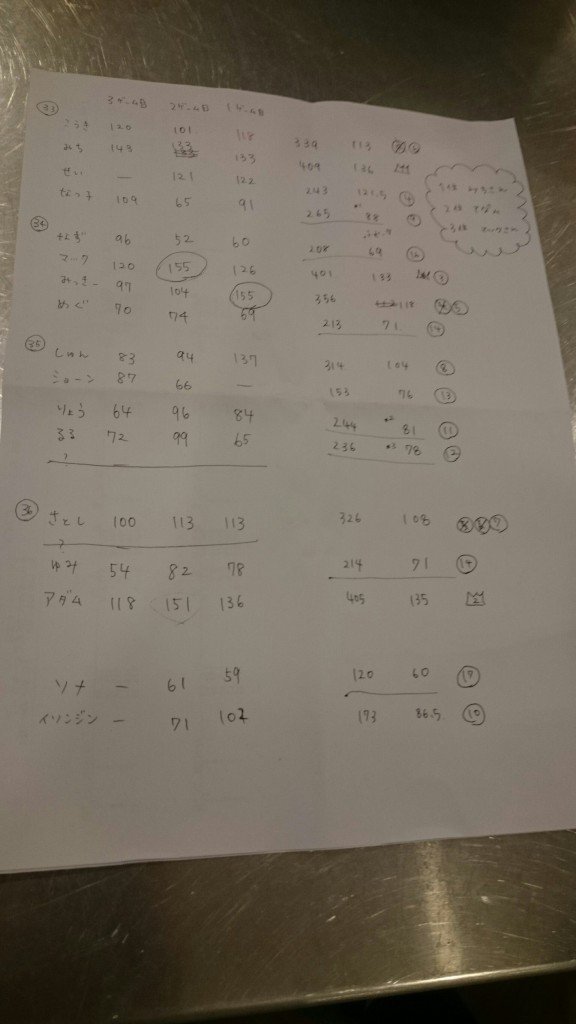 ㉝ 3ゲーム目 2ゲーム目 1ゲーム目
こうき 120 101 118 339 113 ⑥
みち 143 133 133 409 136
せい — 121 122 243 121.5 ④
109 65 91 265 88
㉞ 96 52 60 208 69
マック 120 155 126 401 133 ③
みっきー 97 104 155 356 118 ⑤
めぐ 70 74 69 213 71 ⑭
1位 みちさん
2位 アダム
3位 マックさん
㉟ しゅん 83 94 137 314 104 ⑧
ショーン 87 66 — 153 76 ⑬
りょう 64 96 84 244 81 ⑪
るる 72 99 65 236 78 ⑫
?
㊱ さとし 100 113 113 326 108 ⑦
?
ゆみ 54 82 78 214 71 ⑭
アダム 118 151 136 405 135 2
ソナ — 61 59 120 60 ⑰
イソンジン — 71 102 173 86.5 ⑩